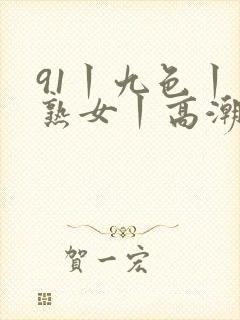 91丨九色丨
熟女丨高潮
賀一宏